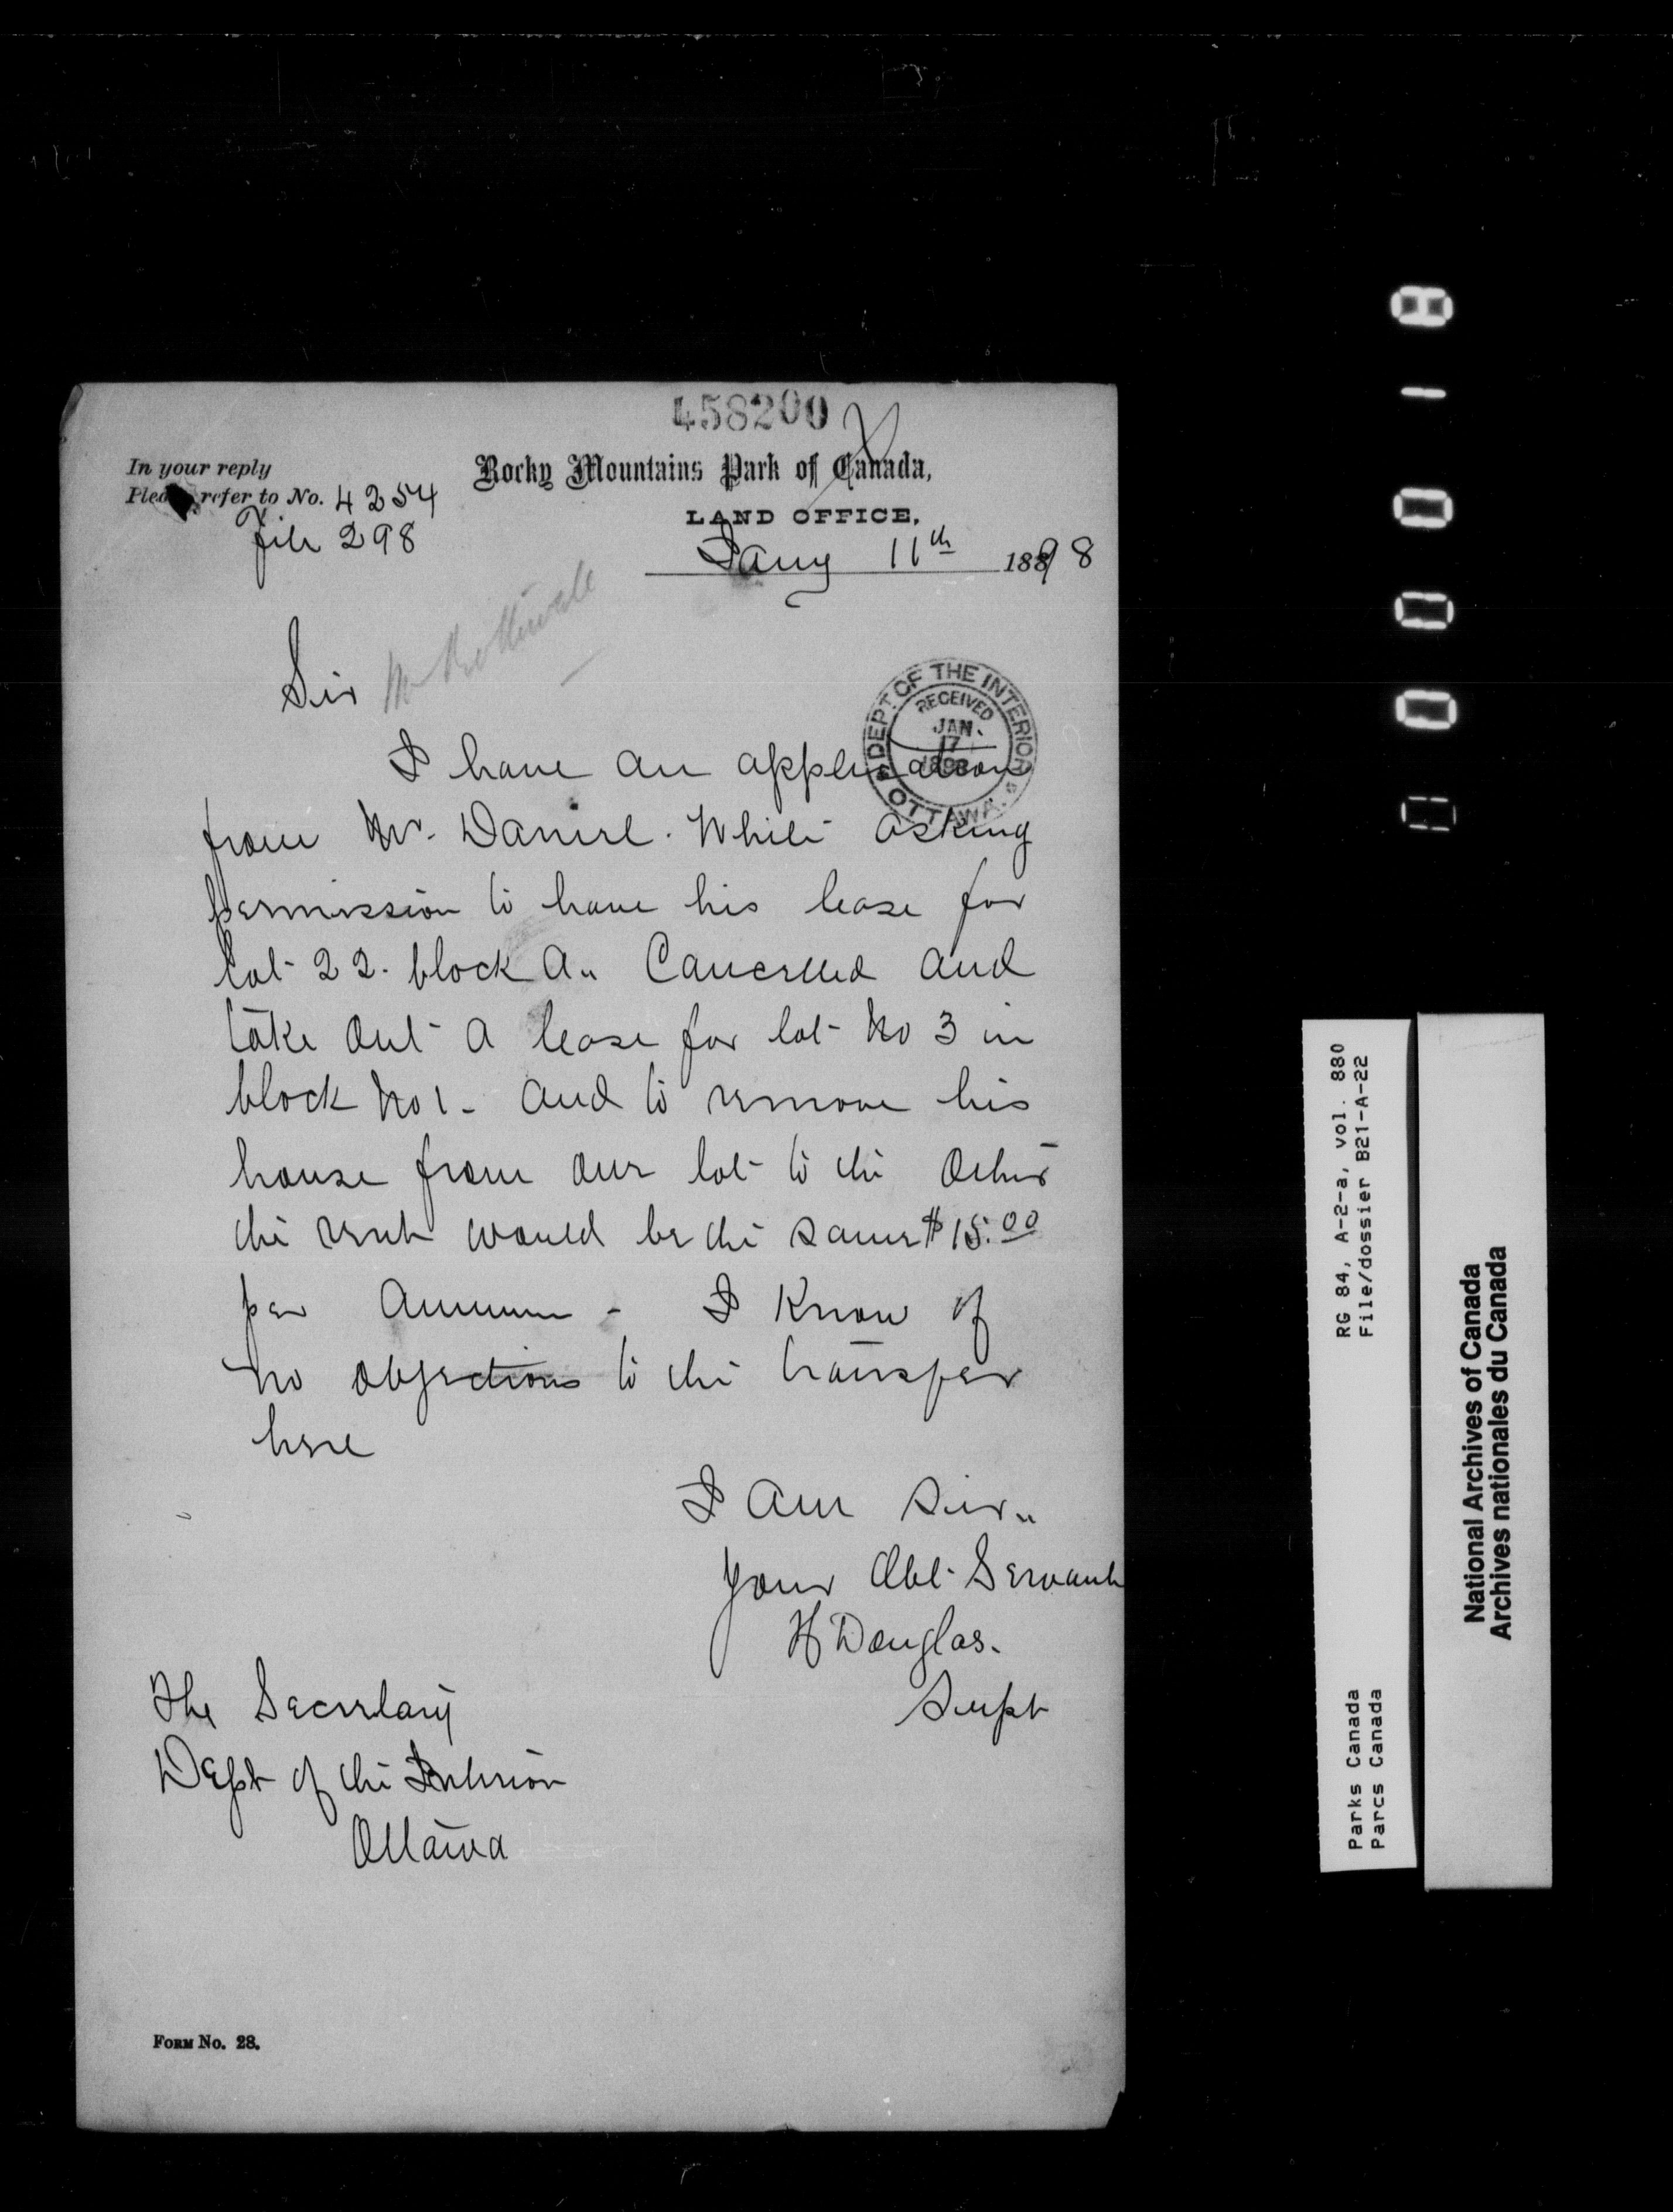 458200
In your reply
Please refer to No. 4254
File 298
Rocky Mountains Park of Canada,
LAND OFFICE,
Jany 11th 1898
Sir
DEPT. OF THE INTERIOR
RECEIVED
JAN.
17
1898
OTTAWA.
I have an application
from Mr. Daniel. White asking
permission to have his lease for
lot 22. block A.. Cancelled and
take out a lease for lot No 3 in
block No 1 - and to remove his
house from one lot to the other
the rent would be the same $15.00
per Annum - I Know of
no objections to the transfer
here
I am Sir..
Your Obt. Servant
H Douglas.
Supt
The Secretary
Dept of the Interior
Ottawa
FORM No. 28.
RG 84, A-2-a, vol. 880
File/dossier B21-A-22
Parks Canada
Parcs Canada
National Archives of Canada
Archives nationales du Canada